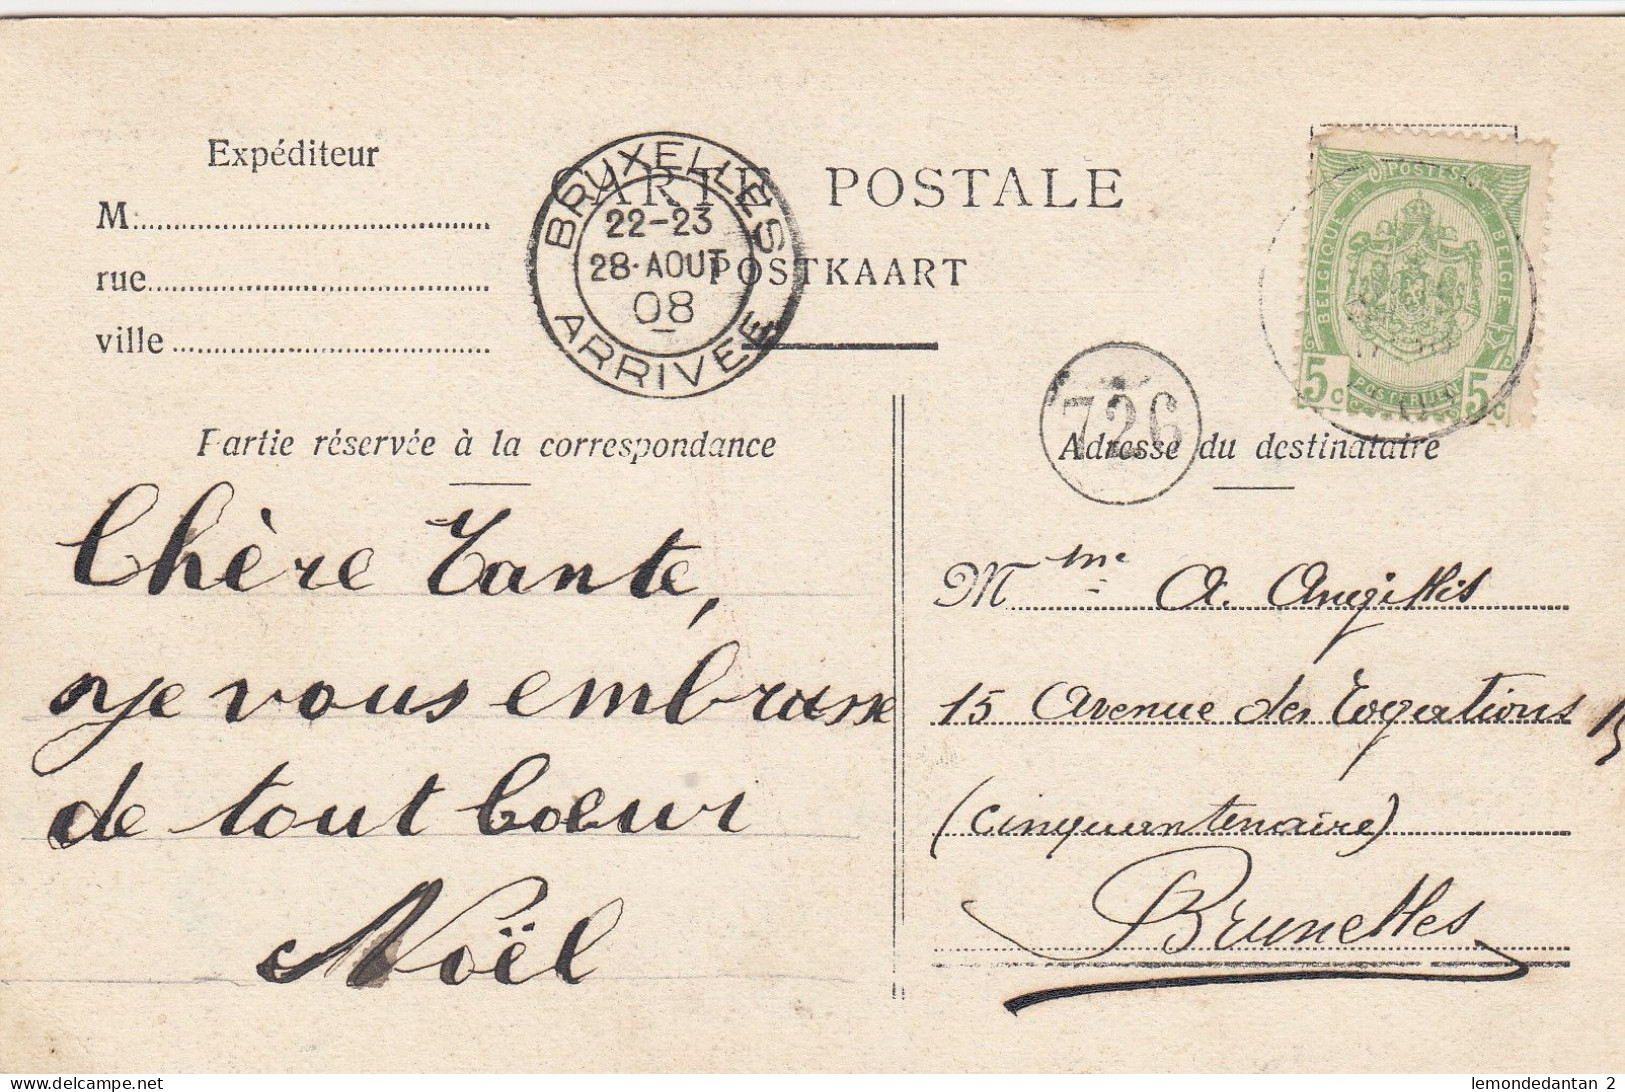 Expéditeur
M
rue
ville
BRUXELLES
22-23
28·AOUT
08
ARRIVEE
CARTE POSTALE
POSTKAART
POSTES
BELGIQUE
BELGIE
5c POSTERIJEN 5c
726
Partie réservée à la correspondance
Chère Tante,
je vous embrasse
de tout coeur
Noël
Adresse du destinataire
Mme A. Angillis
15 Avenue des Rogations 15
(Cinquantenaire)
Bruxelles
delcampe.net
lemondedantan_2